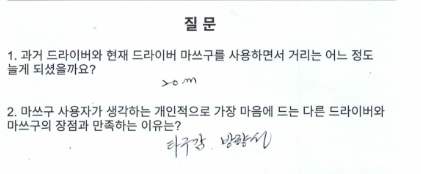 질 문
1. 과거 드라이버와 현재 드라이버 마쓰구를 사용하면서 거리는 어느 정도
늘게 되셨을까요?
20m
2. 마쓰구 사용자가 생각하는 개인적으로 가장 마음에 드는 다른 드라이버와
마쓰구의 장점과 만족하는 이유는?
타구감. 방향성